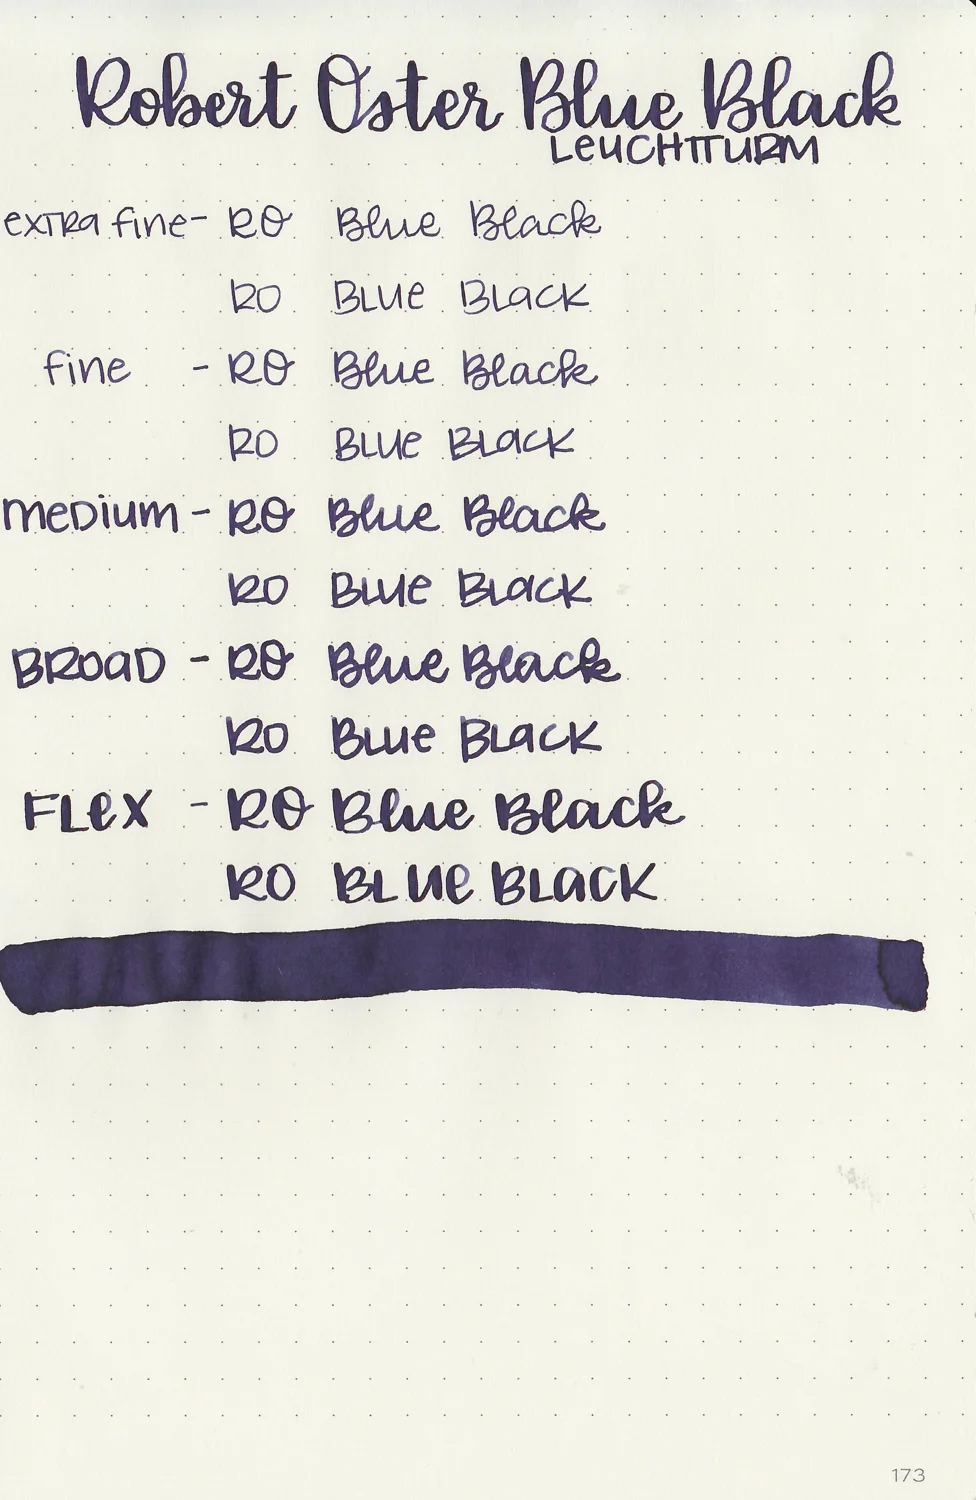 Robert Oster Blue Black
Leuchtturm
extra fine- RO Blue Black
RO Blue Black
fine - RO Blue Black
RO Blue Black
medium - RO Blue Black
RO Blue Black
Broad - RO Blue Black
RO Blue Black
Flex - RO Blue Black
RO Blue Black
173